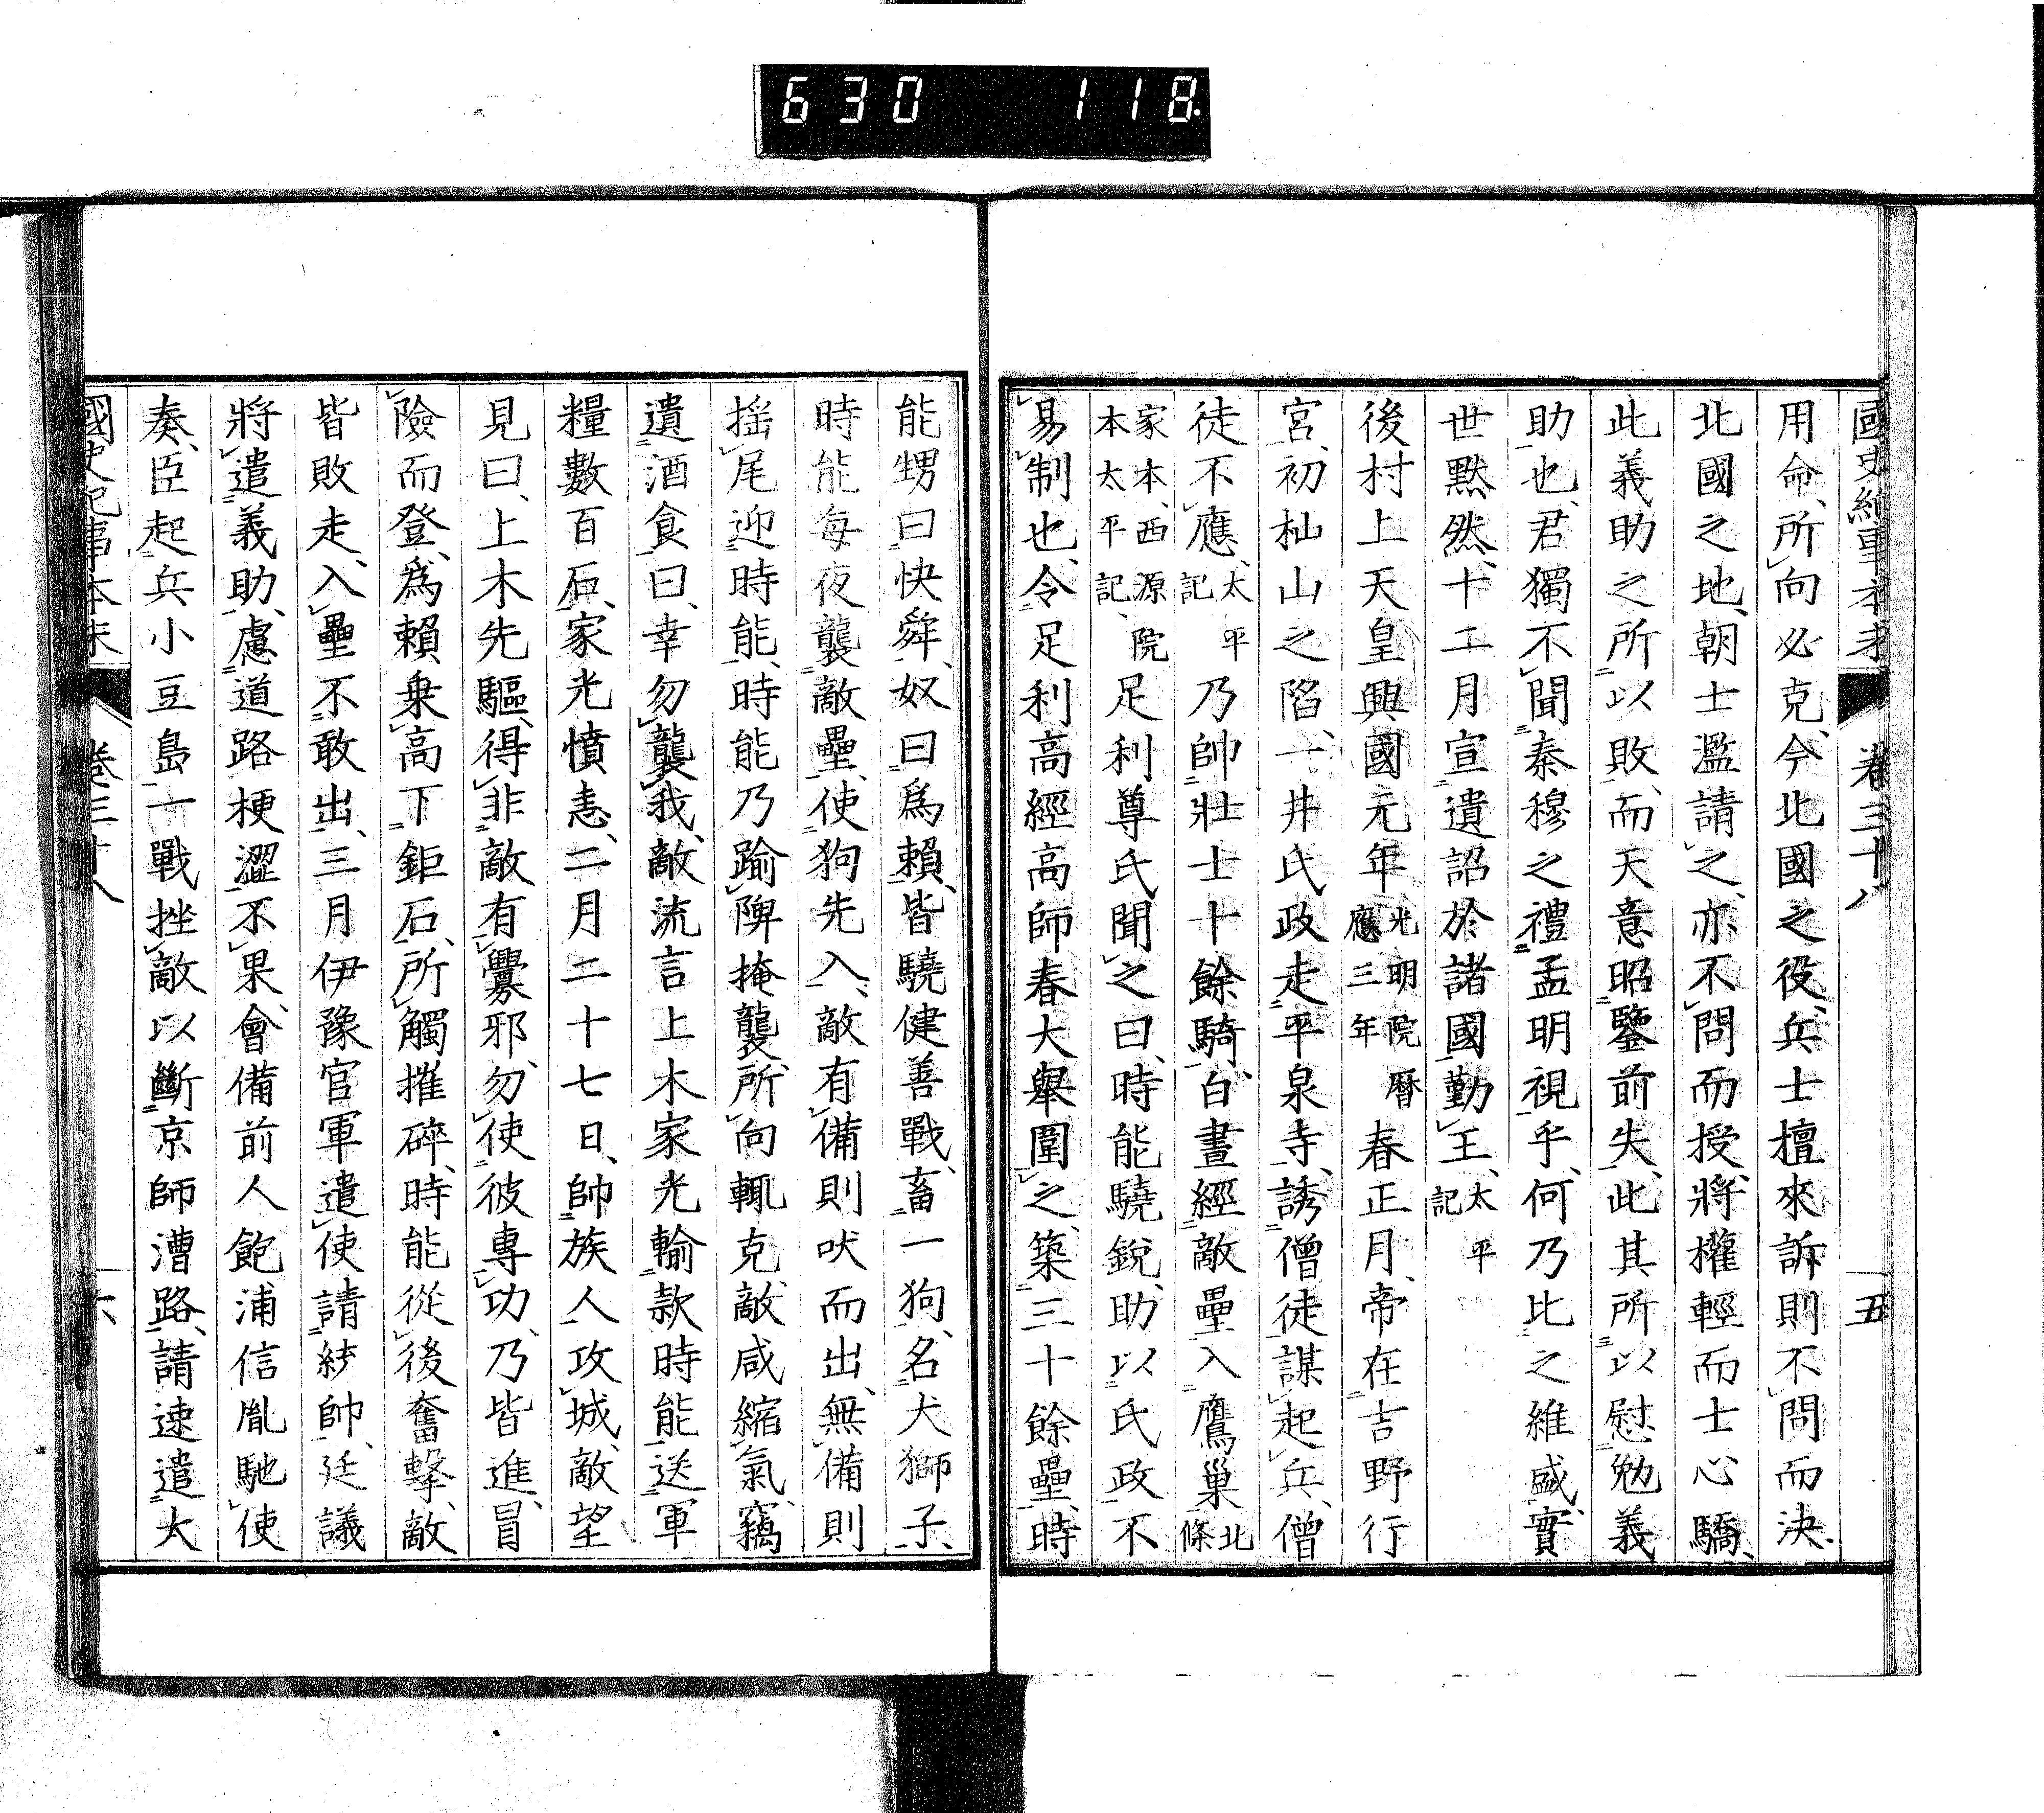 630 118
國史紀事本末 卷三十八 五
用命、所向必克、今北國之役、兵士擅來訴則不問而決、
北國之地、朝士濫請之、亦不問而授、將權輕而士心驕、
此義助之所以敗、而天意昭鑒前失、此其所以慰勉義
助也、君獨不聞秦穆之禮孟明視乎、何乃比之維盛、實
世默然、十二月宣遺詔於諸國勤王、太平記
後村上天皇興國元年光明院曆應三年春正月、帝在吉野行
宮、初杣山之陷、一井氏政走平泉寺、誘僧徒謀起兵、僧
徒不應、太平記乃帥壯士十餘騎、白晝經敵壘入鷹巢北條
家本、西源院本太平記、足利尊氏聞之曰、時能驍銳、助以氏政、不
易制也、令足利高經高師春大舉圍之、築三十餘壘、時
能甥曰快舜、奴曰爲賴、皆驍健善戰、畜一狗、名犬獅子、
時能每夜襲敵壘、使狗先入、敵有備則吠而出、無備則
搖尾迎時能、時能乃踰陴掩襲、所向輒克、敵咸縮氣、竊
遺酒食曰、幸勿襲我、敵流言上木家光輸款時能、送軍
糧數百石、家光憤恚、二月二十七日、帥族人攻城、敵望
見曰、上木先驅、得非敵有釁邪、勿使彼專功、乃皆進、冒
險而登、爲賴乘高下鉅石、所觸摧碎、時能從後奮擊、敵
皆敗走、入壘不敢出、三月伊豫官軍遣使請統帥、廷議
將遣義助、慮道路梗澀不果、會備前人飽浦信胤馳使
奏、臣起兵小豆島、一戰挫敵、以斷京師漕路、請速遣大
國史紀事本末 卷三十八 六